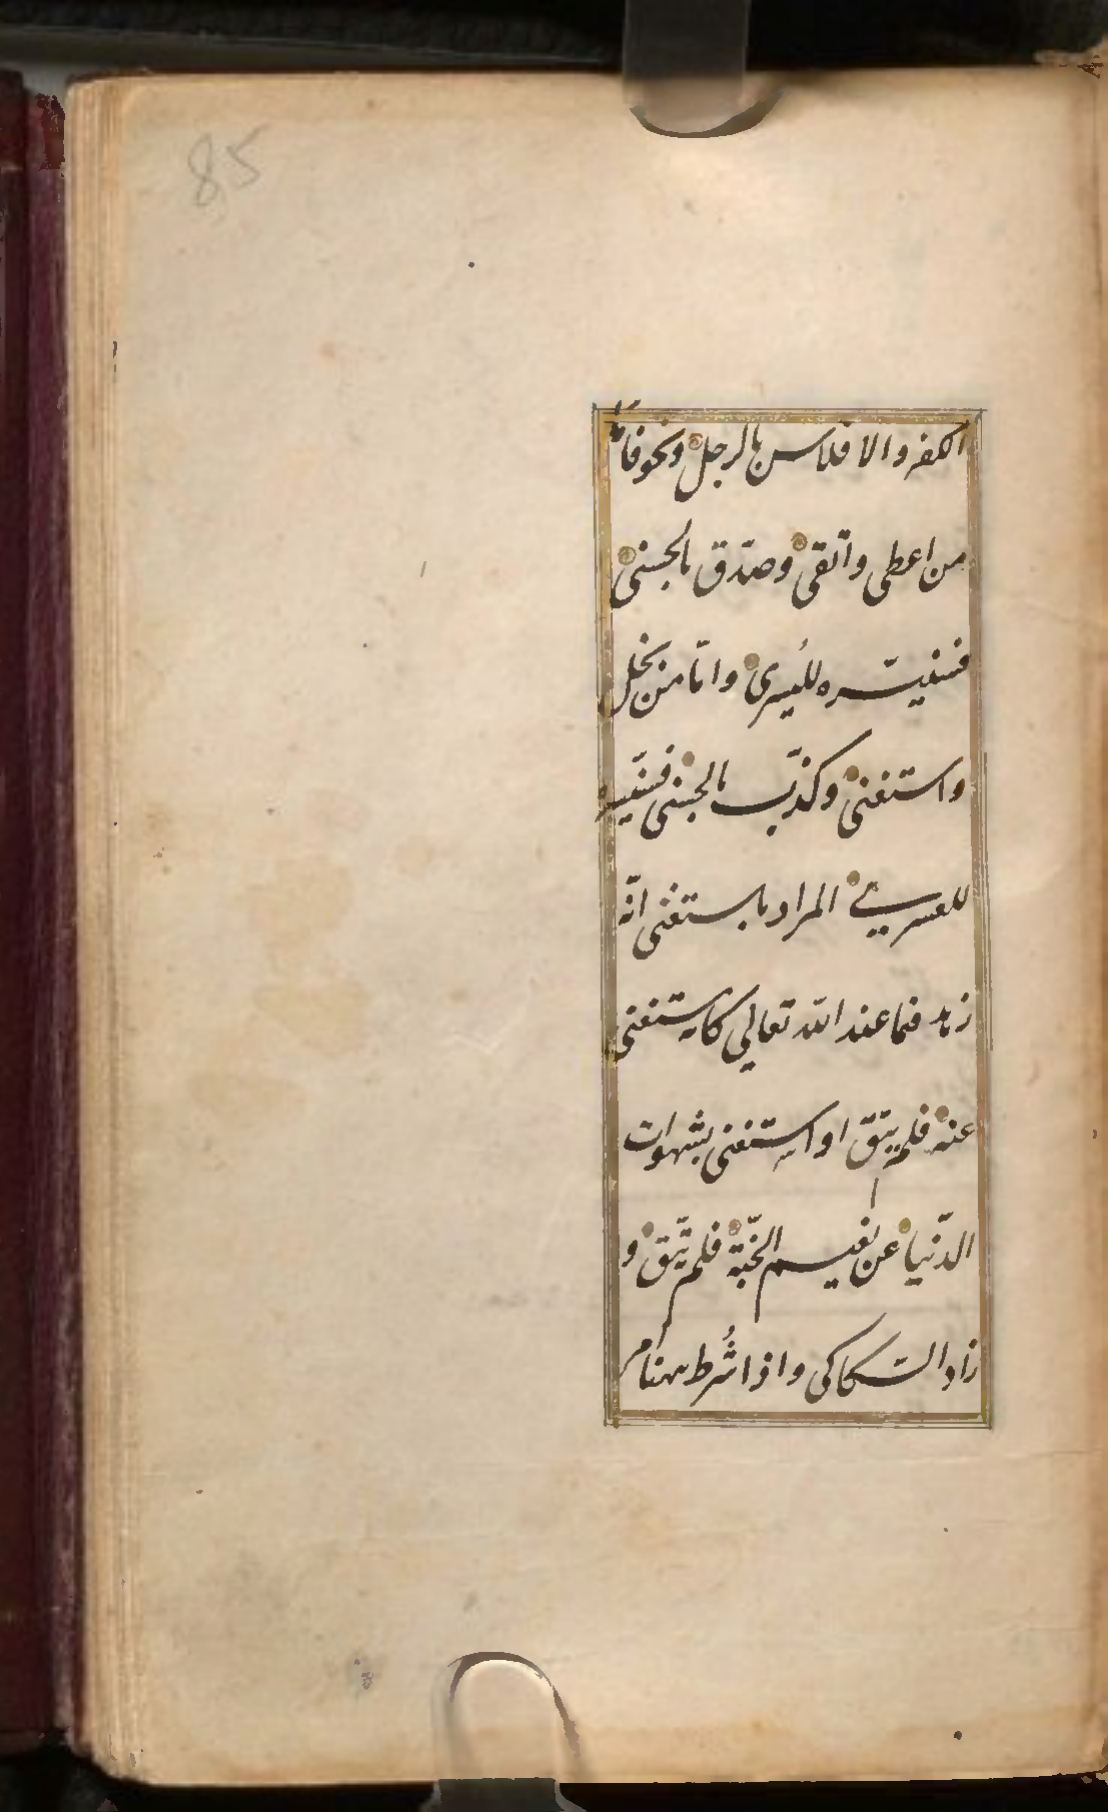 85
الكفر والافلاس بالرجل ونحو فاما
من اعطى واتقى وصدّق بالحسنى
فسنيسّره لليُسرى وامّا من بخل
واستغنى وكذّب بالحسنى فسنيسره
للعسرى المراد باستغنى انّه
زهد فيما عند الله تعالى كانه استغنى
عنه فلم يتق او استغنى بشهوات
الدّنيا عن نعيم الجنّة فلم يتّق و
زاد السكاكى واذا شُرط هنا مر